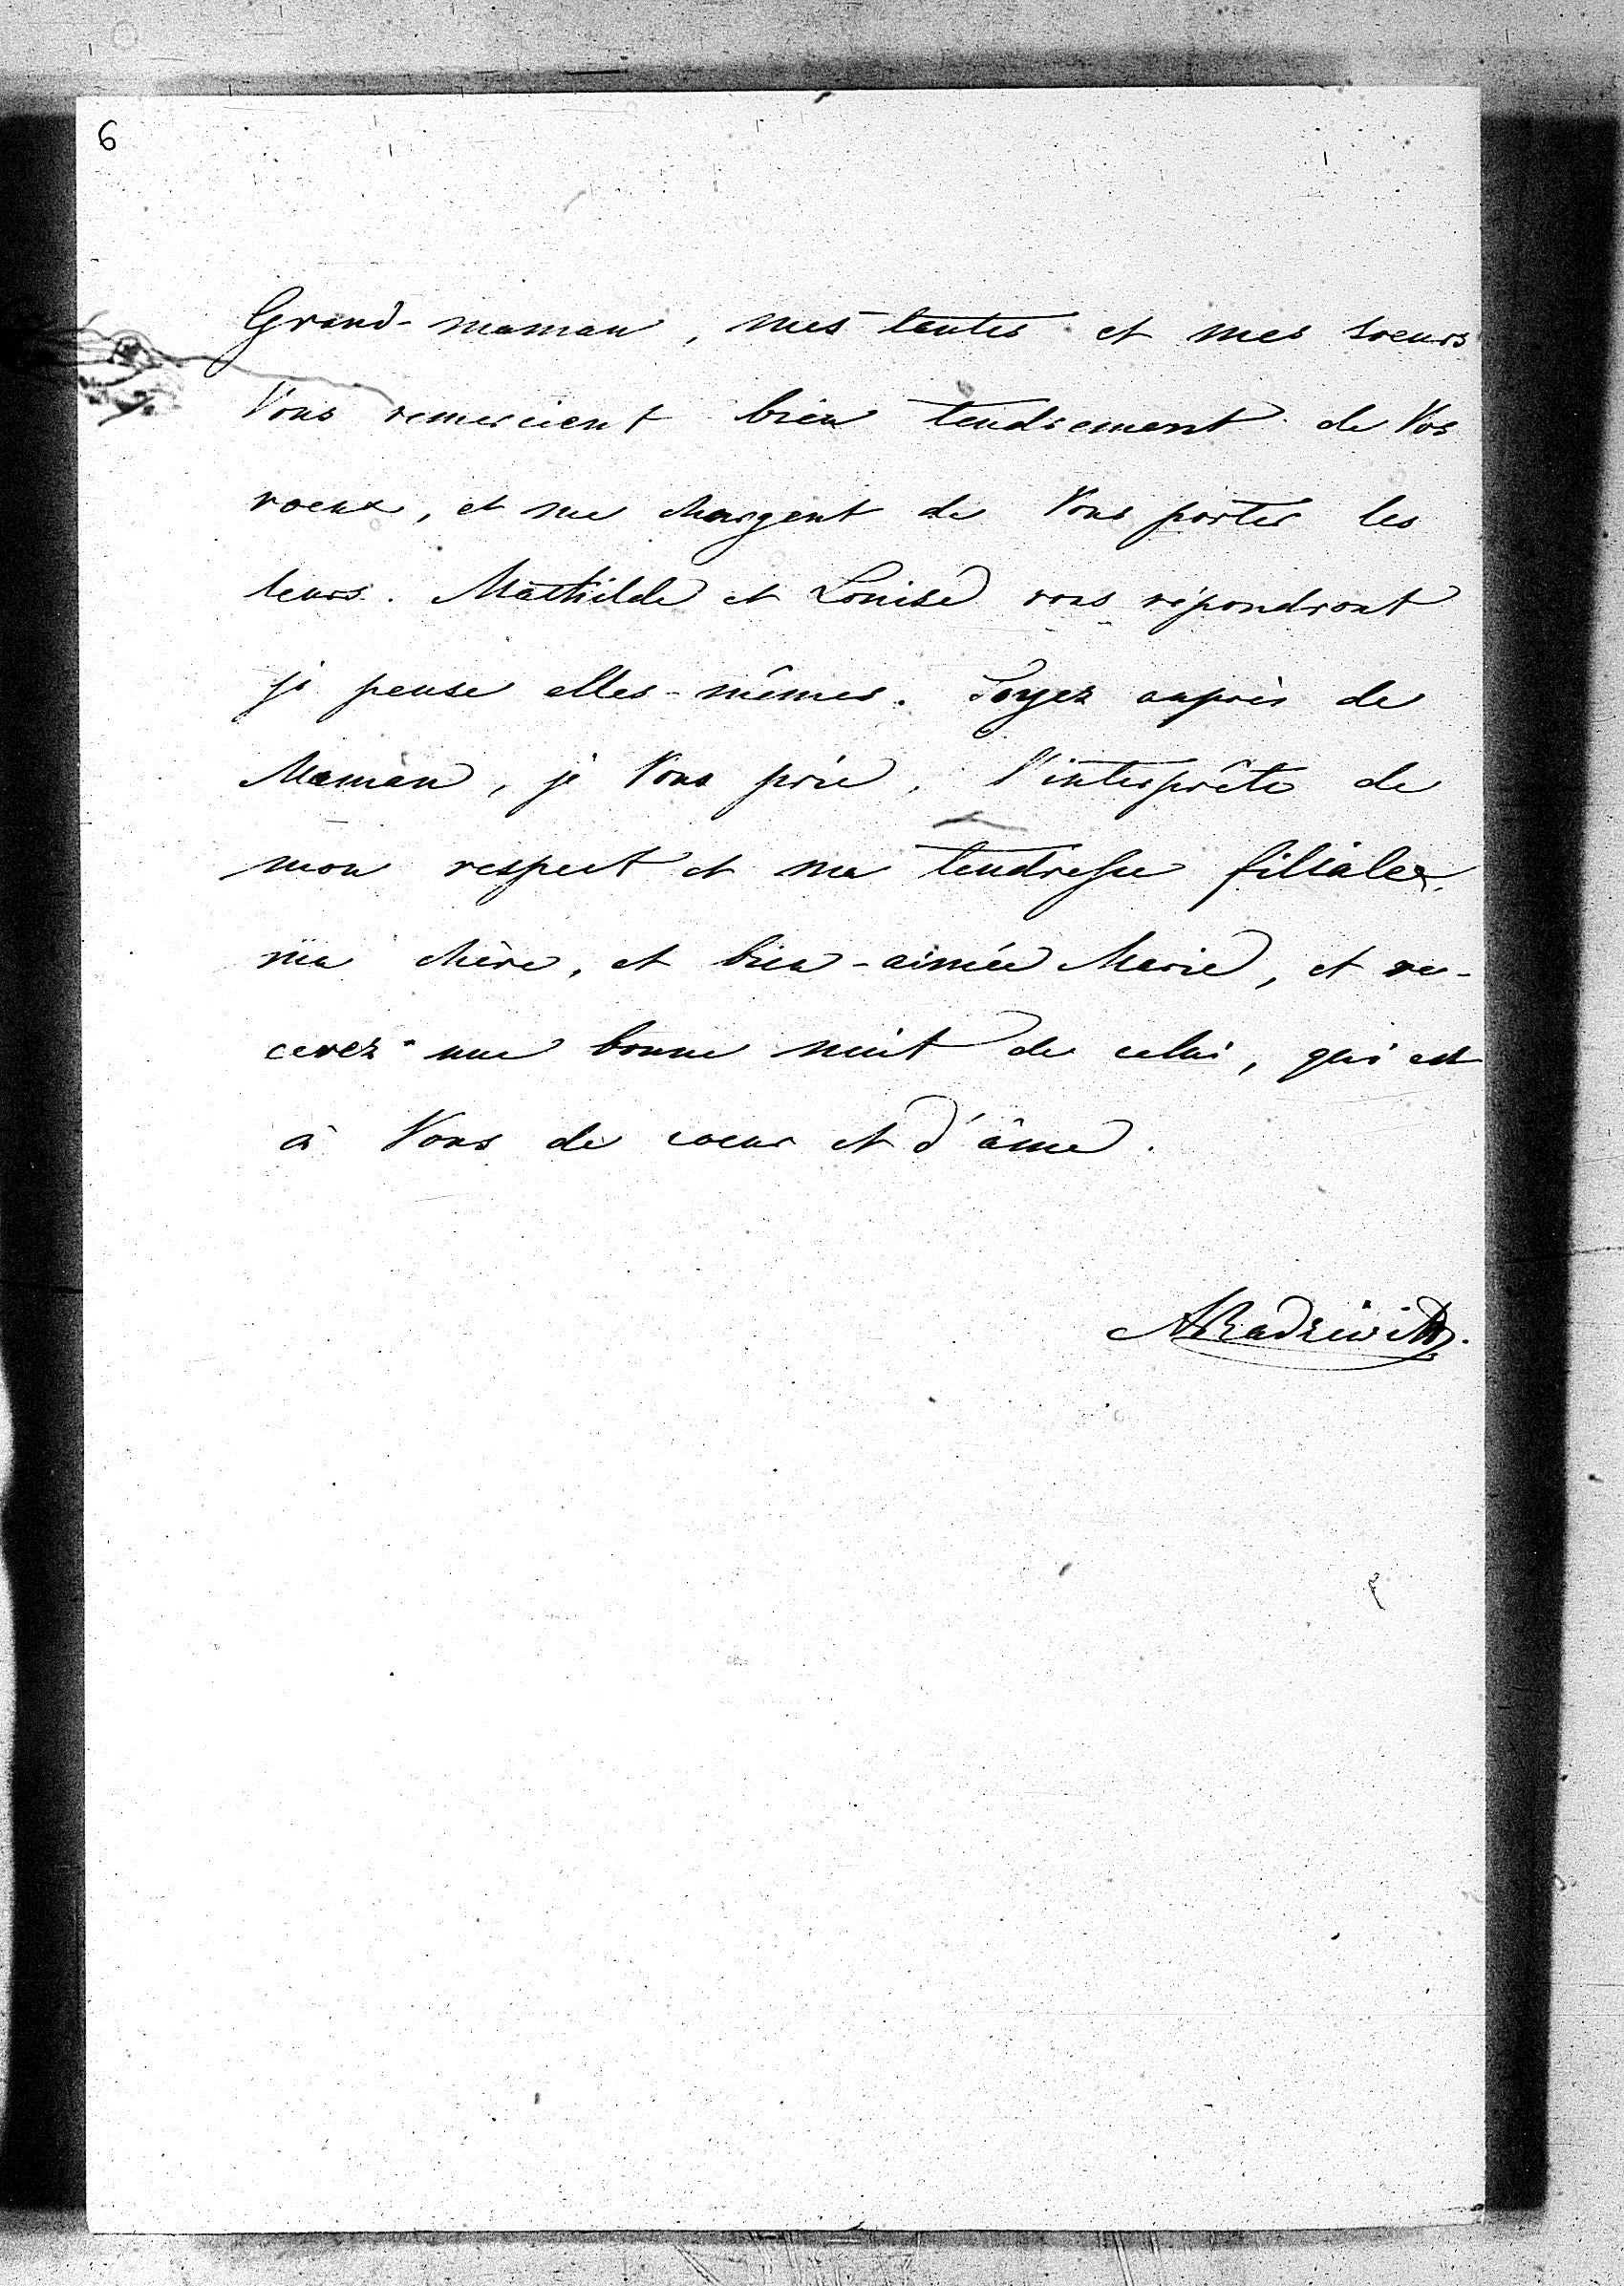 6
Grand-maman, mes tantes et mes soeurs
Vous remercient bien tendrement de Vos
voeux, et me chargent de Vous porter les
leurs. Mathilde et Louise vous répondront
je pense elles-mêmes. Soyez auprès de
Maman, je Vous prie, l'interprête de
mon respect et ma tendresse filiales,
ma chère, et bien-aimée Marie, et re-
cevez une bonne nuit de celui, qui est
à Vous de coeur et d'âme.
ARadziwill.